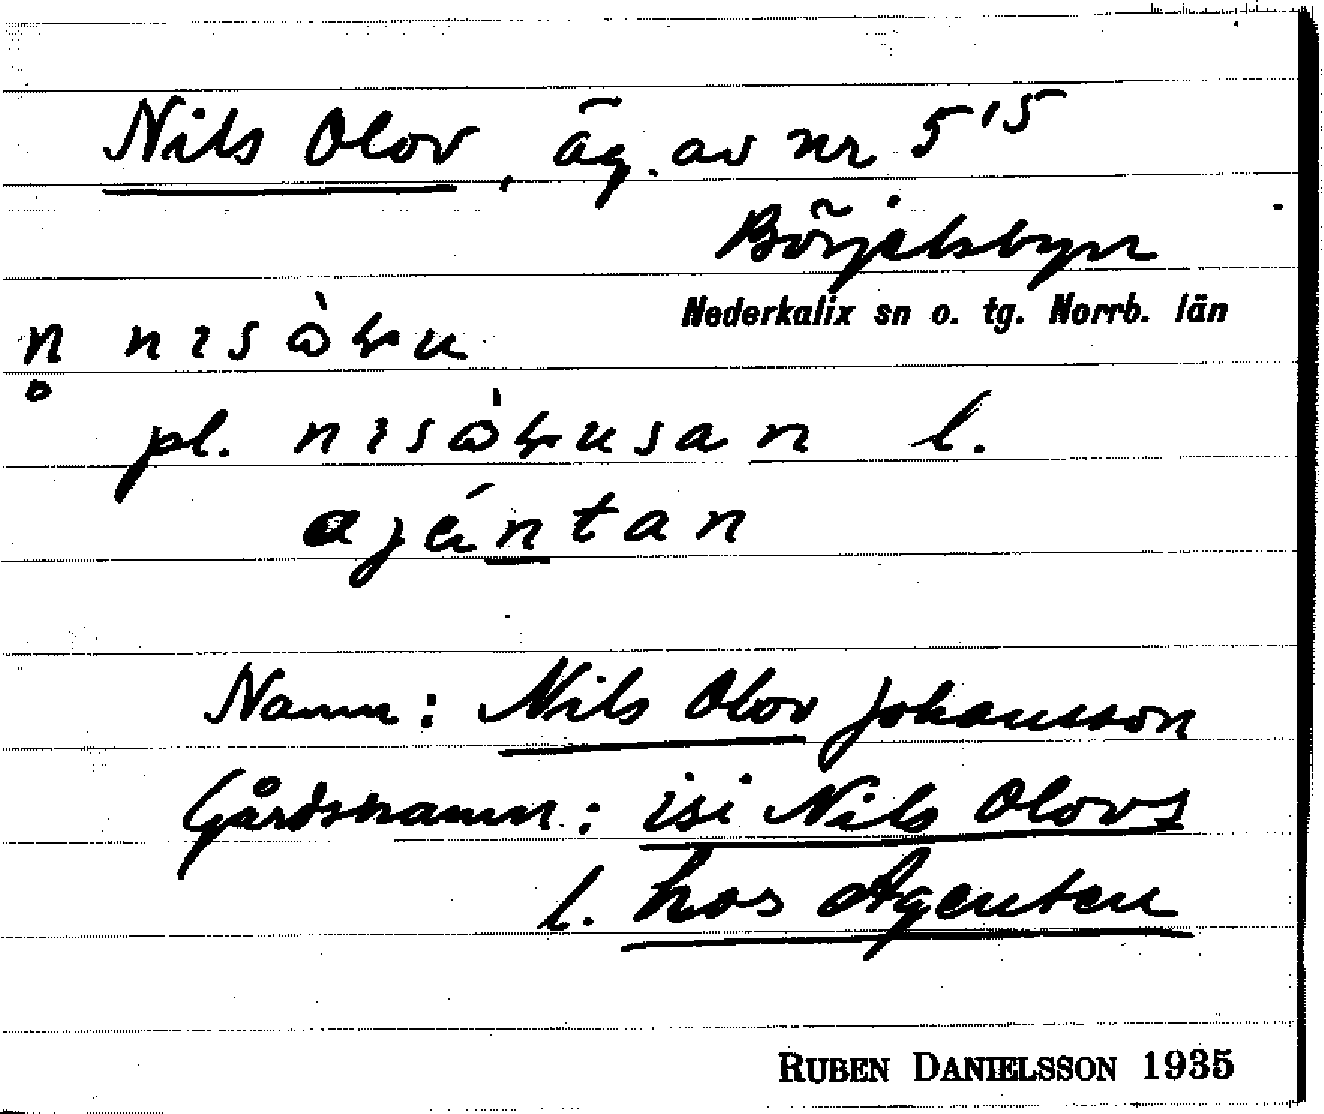 Nils Olov, äg. av nr 5¹⁵
Börjelsbyn
Nederkalix sn o. tg. Norrb. län
pl. l.
ajéntan
Namn: Nils Olov Johansson
Gårdsnamn: isi Nils Olovs
l. hos Agenten
RUBEN DANIELSSON 1935